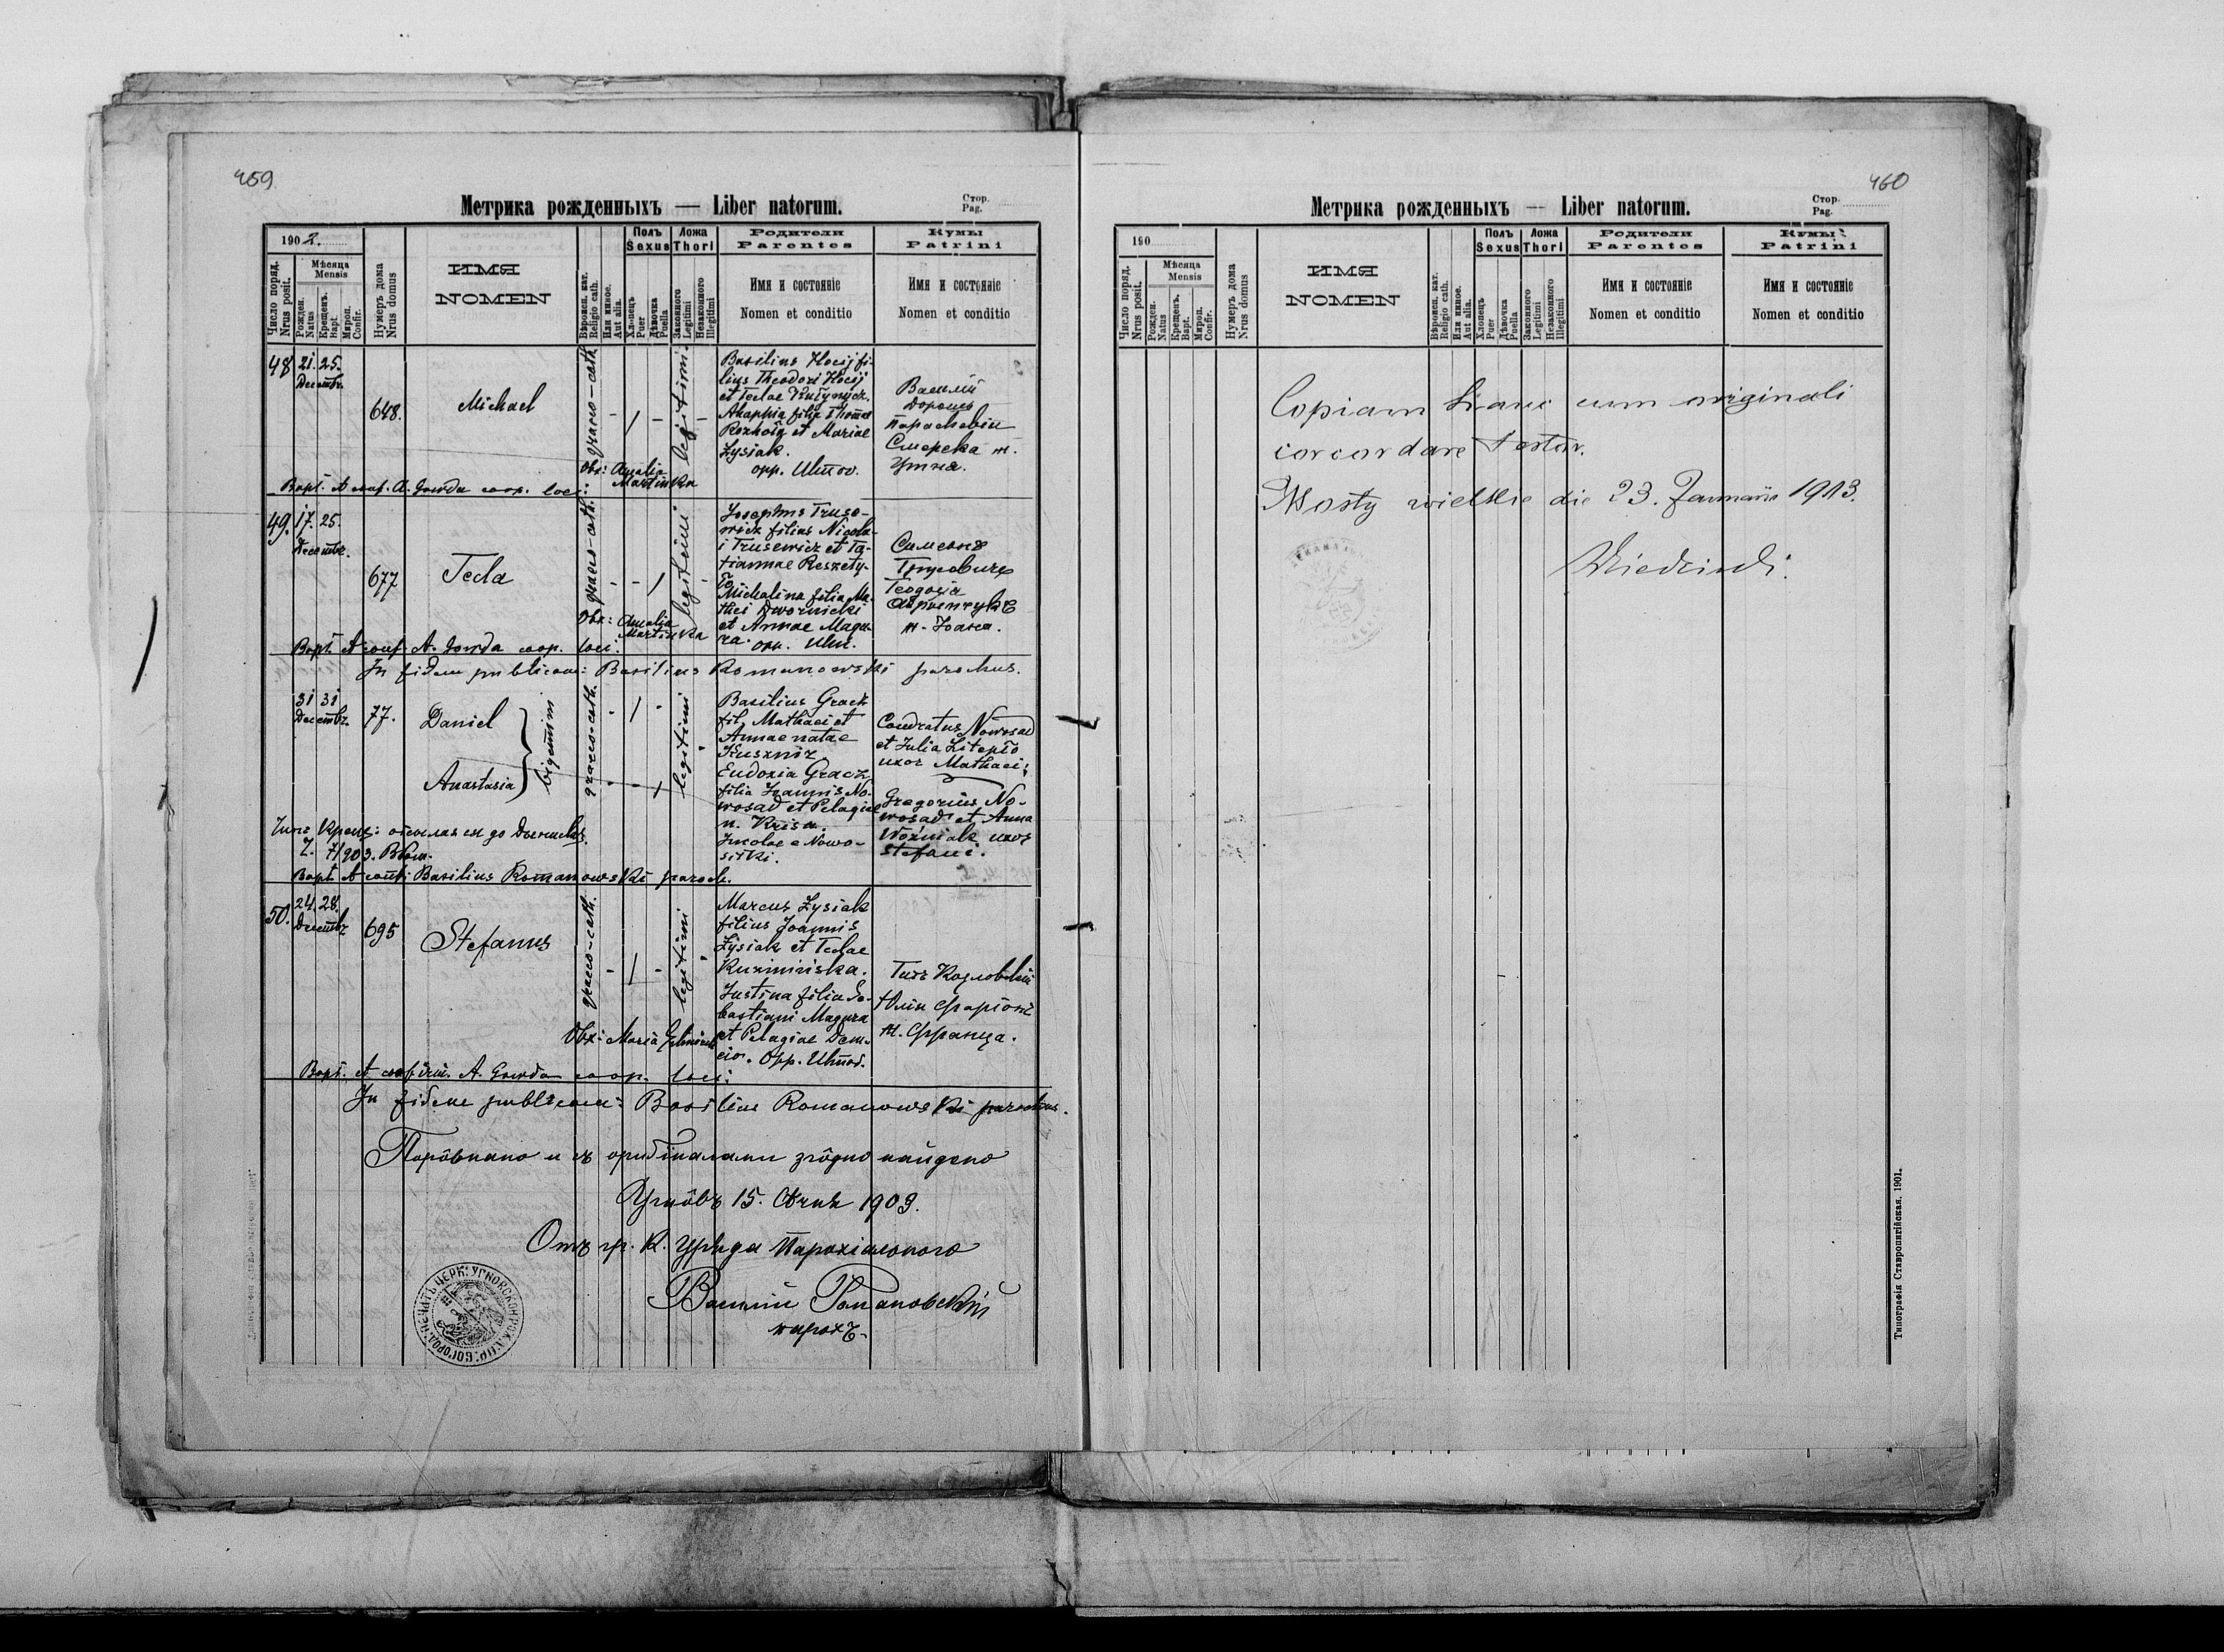 459
Метрика рожденныхъ — Liber natorum.
Стор.
Pag.
1902.
Число поряд.
Nrus posit.
Мѣсяца
Mensis
Рожден.
Natus
Крещенъ.
Bapt.
Мироп.
Confir.
Нумеръ дома
Nrus domus
ИМЯ
NOMEN
Вѣроисп. кат.
Religio cath.
Или инное.
Aut alia.
Полъ
Sexus
Хлопецъ
Puer
Дѣвочка
Puella
Ложа
Thori
Законного
Legitimi
Незаконного
Illegitimi
Родители
Parentes
Имя и состояніе
Nomen et conditio
Кумы
Patrini
Имя и состояніе
Nomen et conditio
48
21. 25.
Decembr.
648.
Michael
graeco-cath.
- / - legitimi -
Basilius Hocij fi-
lius Theodori Hocij
et Teclae
Ahaphia filia Thomae
et Mariae
Łysiak.
opp. Uhnov.
Василій
Дорошъ
Параскевія
Смерека ж.
Obx: Amalia
Martinka
Bapt. et conf. A. Gowda coop. loci:
49.
17. 25.
Decembr.
677
Tecla
graeco-cath.
- - / legitimi -
Josephus Truse-
wicz filius Nicola-
i Trusewicz et Ta-
tiannae Reszety-
ło
Michalina filia Ma-
thei Dwornicki
et Annae Magu-
ra. opp. Uhn.
Симеонъ
Трусевичъ
Теодозія
ж. Іоана.
Obx: Amalia
Martinka
Bapt. et conf. A. Gowda coop. loci.
In fidem publicam: Basilius Romanowski parochus.
31 31
Decembr.
77.
Daniel
Anastasia
bigemini
graeco-cath.
- / -
- - /
legitimi
Basilius Gracz
fil. Mathaei et
Annae natae
Kusznir
Eudoxia Gracz
filia Ioannis No-
wosad et Pelagiae
n. Krisa.
Incolae e Nowo-
siłki.
Condratus Nowosad
et Julia
uxor Mathaei;
Gregorius No-
wosad et Anna
Woźniak uxor
Stefani.
7/903.
Bapt. et conf: Basilius Romanowski paroch.
50.
24. 28.
Decembr
695
Stefanus
graeco-cath.
- / - legitimi -
Marcus Łysiak
filius Joannis
Łysiak et Teclae
Kuzminska.
Justina filia Se-
bastiani Magura
et Pelagiae Dem-
ciо. Opp. Uhnov.
Титъ Козловскій
Юлія
ж. Франца.
Obx: Maria
Bapt. et confirm. A. Gowda coop. loci:
In fidem publicam: Basilius Romanowski parochus.
Порôвнано и съ оригиналами згôдно найдено
Угнôвъ 15. Сѣчня 1903.
Отъ гр. к. Уряда парохіяльного
Василій Романовскій
парохъ
460
Метрика рожденныхъ — Liber natorum.
Стор.
Pag.
190
Число поряд.
Nrus posit.
Мѣсяца
Mensis
Рожден.
Natus
Крещенъ.
Bapt.
Мироп.
Confir.
Нумеръ дома
Nrus domus
ИМЯ
NOMEN
Вѣроисп. кат.
Religio cath.
Или инное.
Aut alia.
Полъ
Sexus
Хлопецъ
Puer
Дѣвочка
Puella
Ложа
Thori
Законного
Legitimi
Незаконного
Illegitimi
Родители
Parentes
Имя и состояніе
Nomen et conditio
Кумы
Patrini
Имя и состояніе
Nomen et conditio
Copiam hanc cum originali
concordare testor.
Mosty wielkie die 23. Januarii 1913.
Типографія Ставропигійская. 1901.